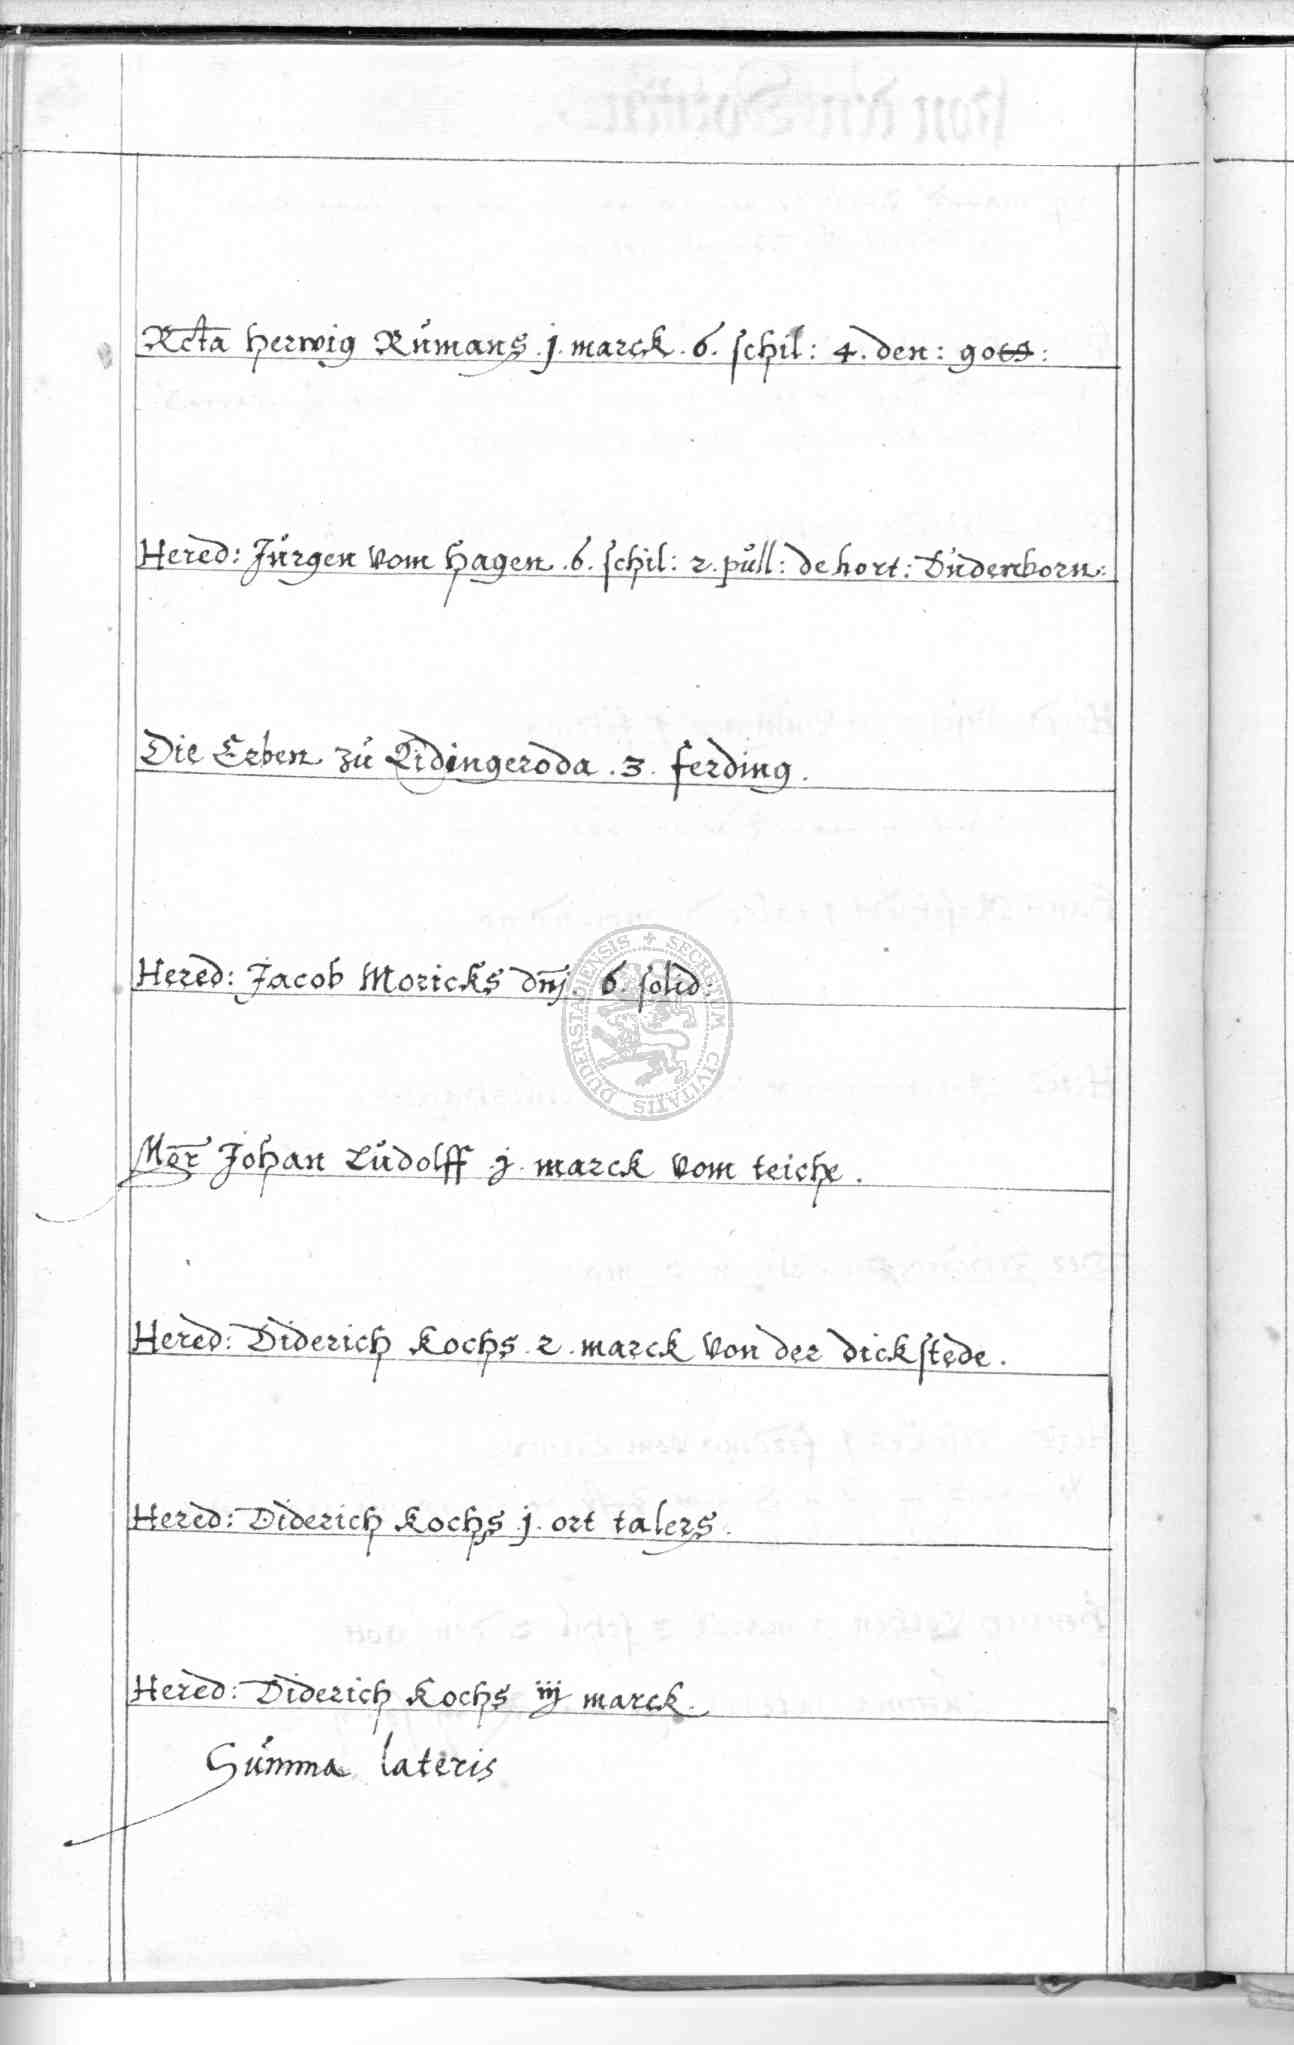 Rcta Herwig Rümans .j. marck .6. schil: 4. den: gott:
Hered: Jürgen vom Hagen .6. schil: 2. püll: de hort: Düdenborn:
Die Erben zü Tidingeroda .3. ferding.
Hered: Jacob Moricks dnj. 6. solid:
DUDERSTADIENSIS SECRETUM CIVITATIS
Mgr Johan Lüdolff j. marck vom teiche.
Hered: Diderich Kochs .2. marck von der dickstede.
Hered: Diderich Kochs .j. ort talers.
Hered: Diderich Kochs iiij marck.
Sümma lateris